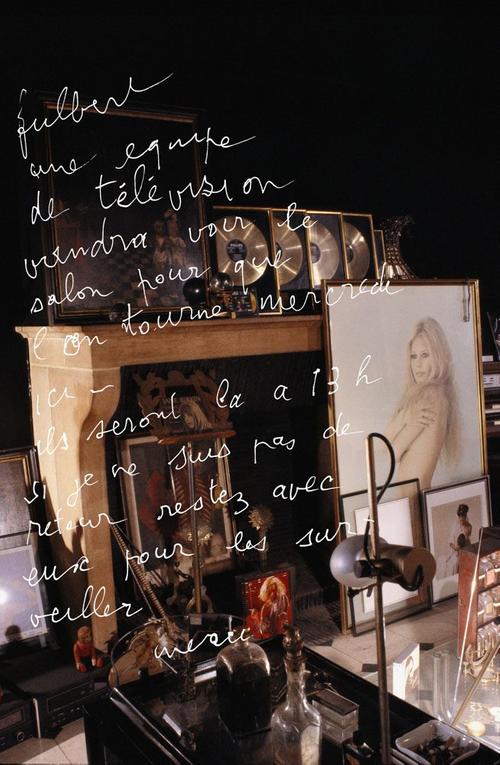 fulbert
une equipe
de télévision
viendra voir le
salon pour que
l'on tourne mercredi
ici -
ils seront là a 13 h
si je ne suis pas de
retour restez avec
eux pour les sur-
veiller
merci